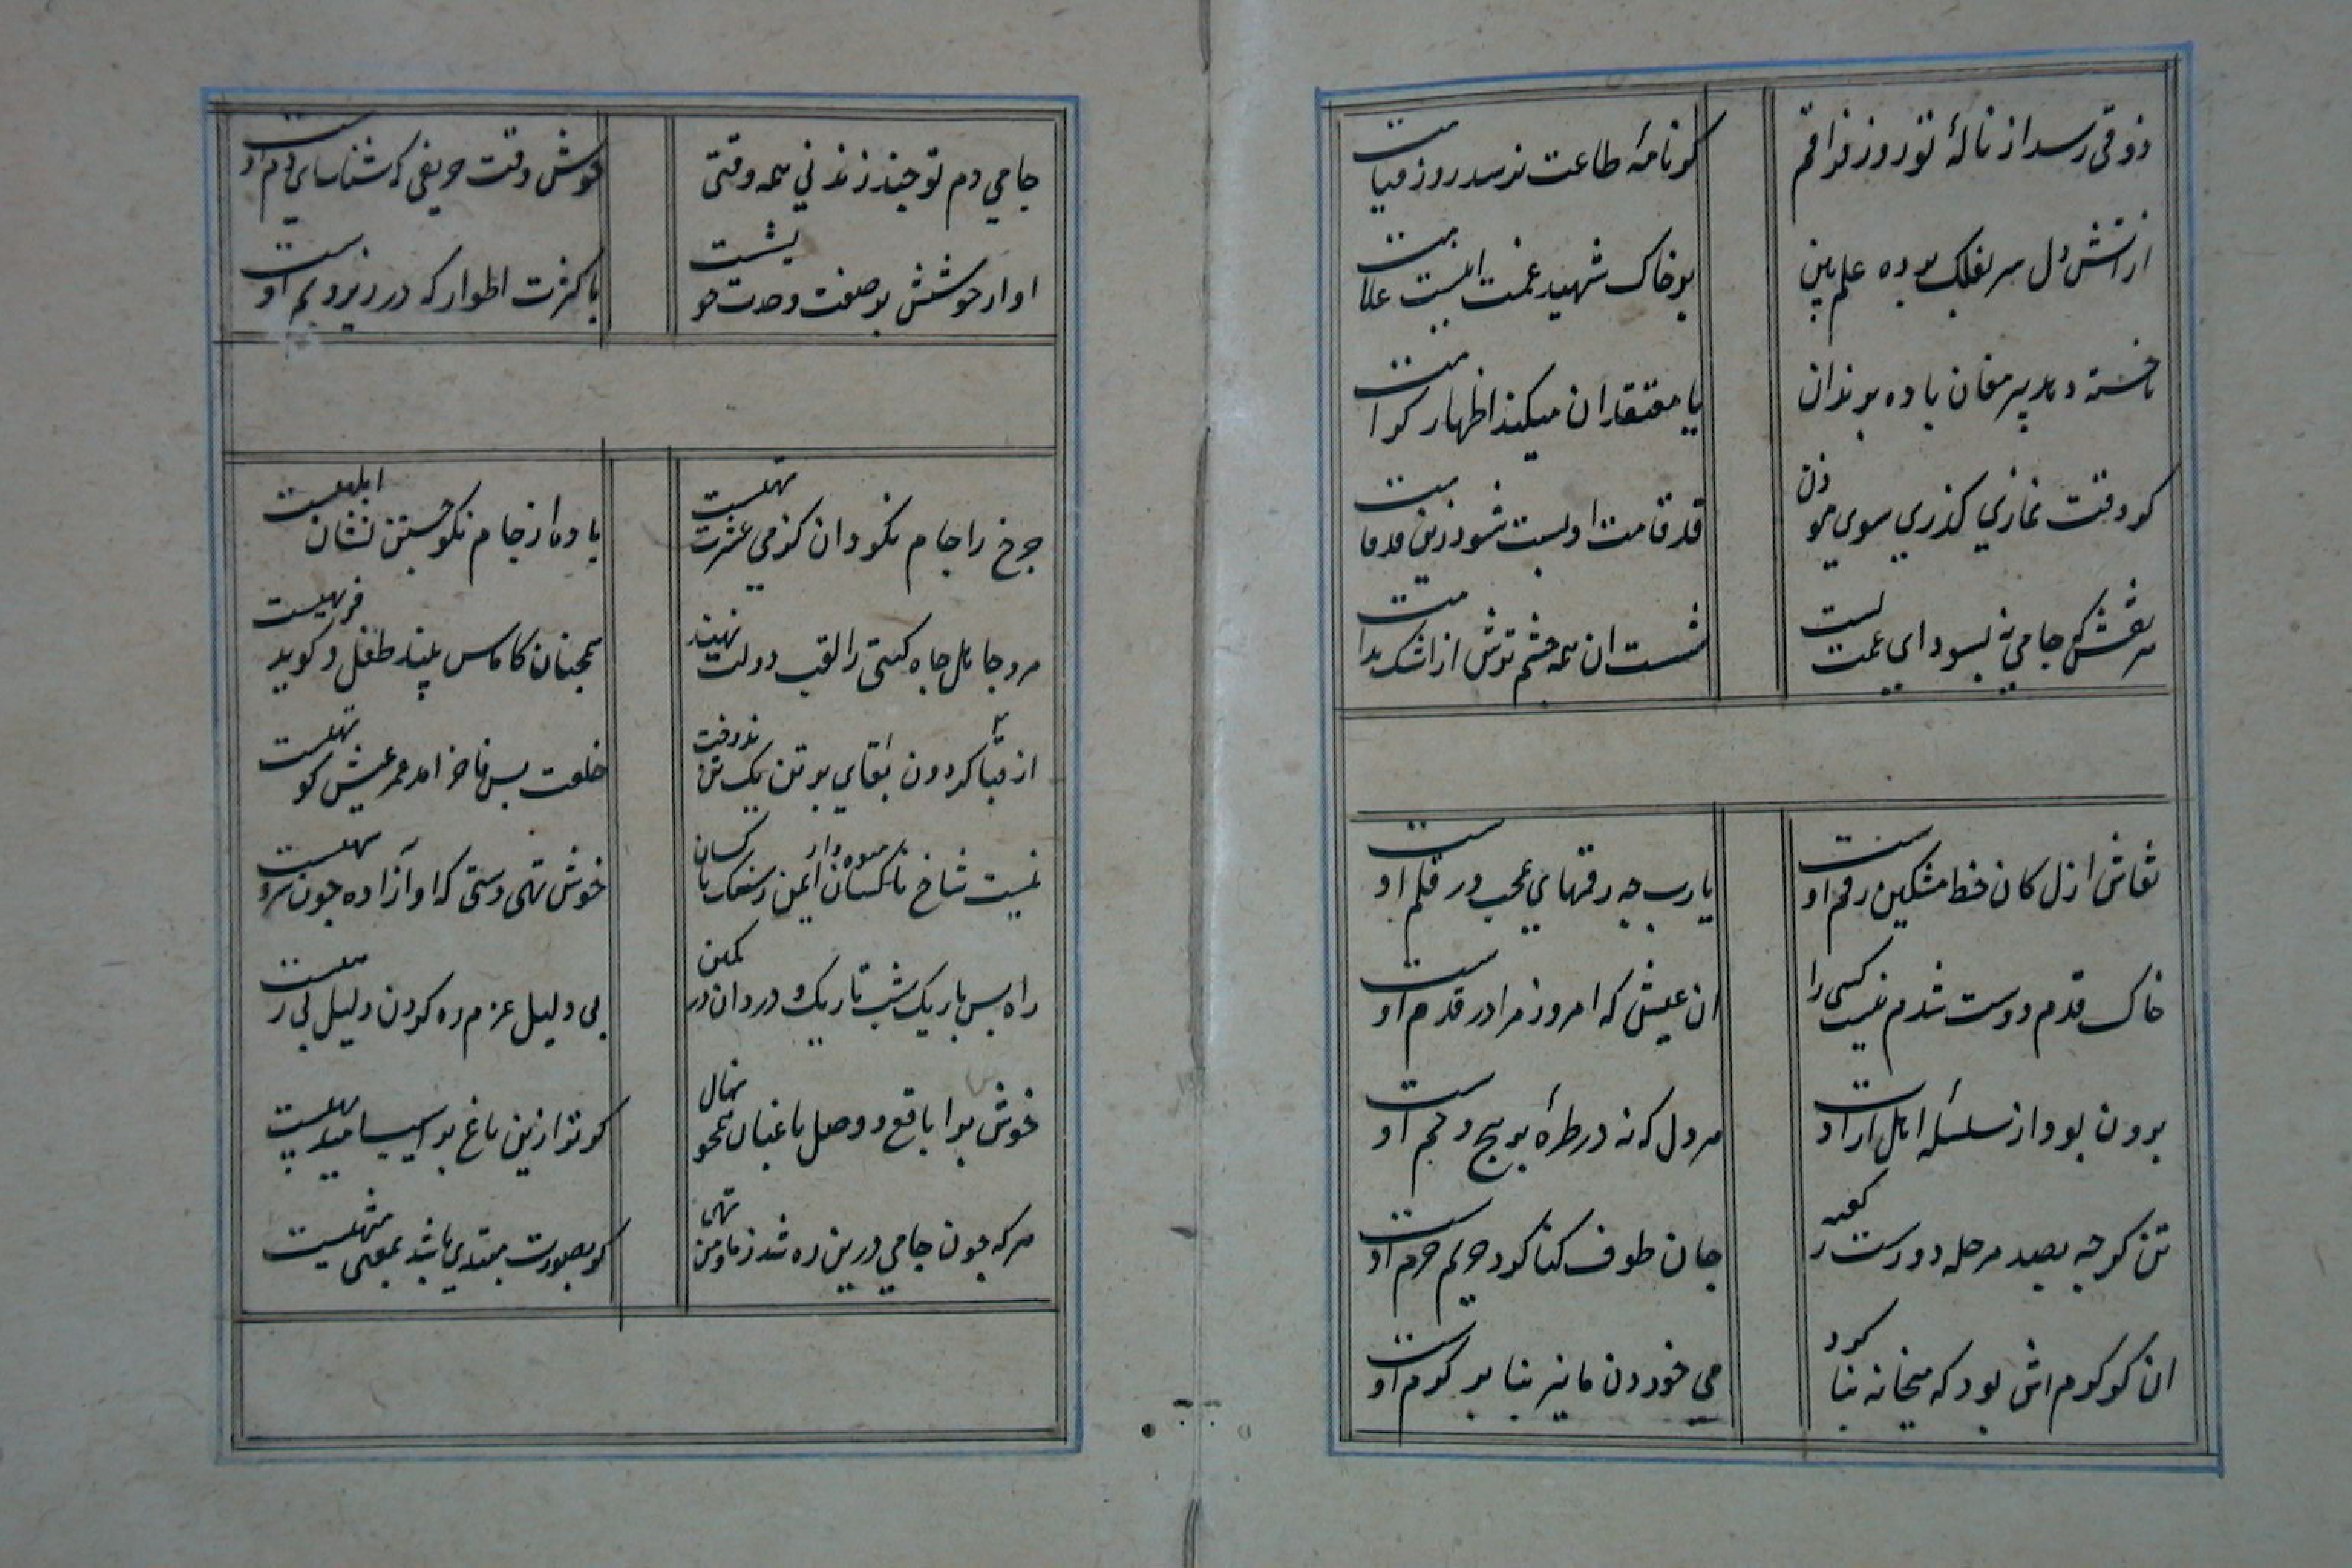 ذوقی رسد از نالهٔ تو روز فراقم
کو نامهٔ طاعت نرسد روز قیامت
از آتش دل سر بفلک برده علم بین
بر خاک شهید غمت اینست علامت
ناخسته دهد پیر مغان باده برندان
با معتقدان میکند اظهار کرامت
کر وقت نمازی کذری سوی موذن
قد قامت او پست شود زین قد و قامت
هر نقش که جامی نه بسودای غمت بست
شست آن همه چشم ترش از اشک ندامت
نقاش ازل کان خط مشکین رقم اوست
یا رب چه رقمهای عجب در قلم اوست
خاک قدم دوست شدم نیست کسی را
ان عیش که امروز مرا در قدم اوست
بیرون بود از سلسلهٔ اهل ارادت
هر دل که نه در طرهٔ پر پیچ و خم اوست
تن کر چه بصد مرحله دورست ز کعبه
جان طوف کنان کرد حریم حرم اوست
ان کز کرمش بود که میخانه بنا کرد
می خوردن ما نیز بنا بر کرم اوست
جامی دم تو چند زند نی همه وقتی
خوش وقت حریفی که شناسای دم اوست
اواز خوشش بر صفت وحدت خویشست
با کثرت اطوار که در زیر و بم اوست
چرخ را جام نکون دان کز می عشرت تهیست
باده از جام نکون جستن نشان ابلهیست
مرد جاهل جاه کیتی را لقب دولت نهد
همچنان کاماس بیند طفل و کوید فربهیست
از قبا کردون بقای بر تن یک تن ندوخت
خلعت بس فاخر امد عمر عیبش کوتهیست
نیست شاخ میوه دار ایمن ز سنک ناکسان
خوش تهی دستی که او آزاده چون سرو سهیست
راه بس باریک شب تاریک و دزدان در کمین
بی دلیل عزم ره کردن دلیل بی رهیست
خوش برا با قطع و وصل باغبان همچو نهال
کر ترا زین باغ بر اسیب امید بهیست
هر که چون جامی درین ره شد ز ما و من تهی
کر بصورت مبتدی باشد بمعنی منتهیست